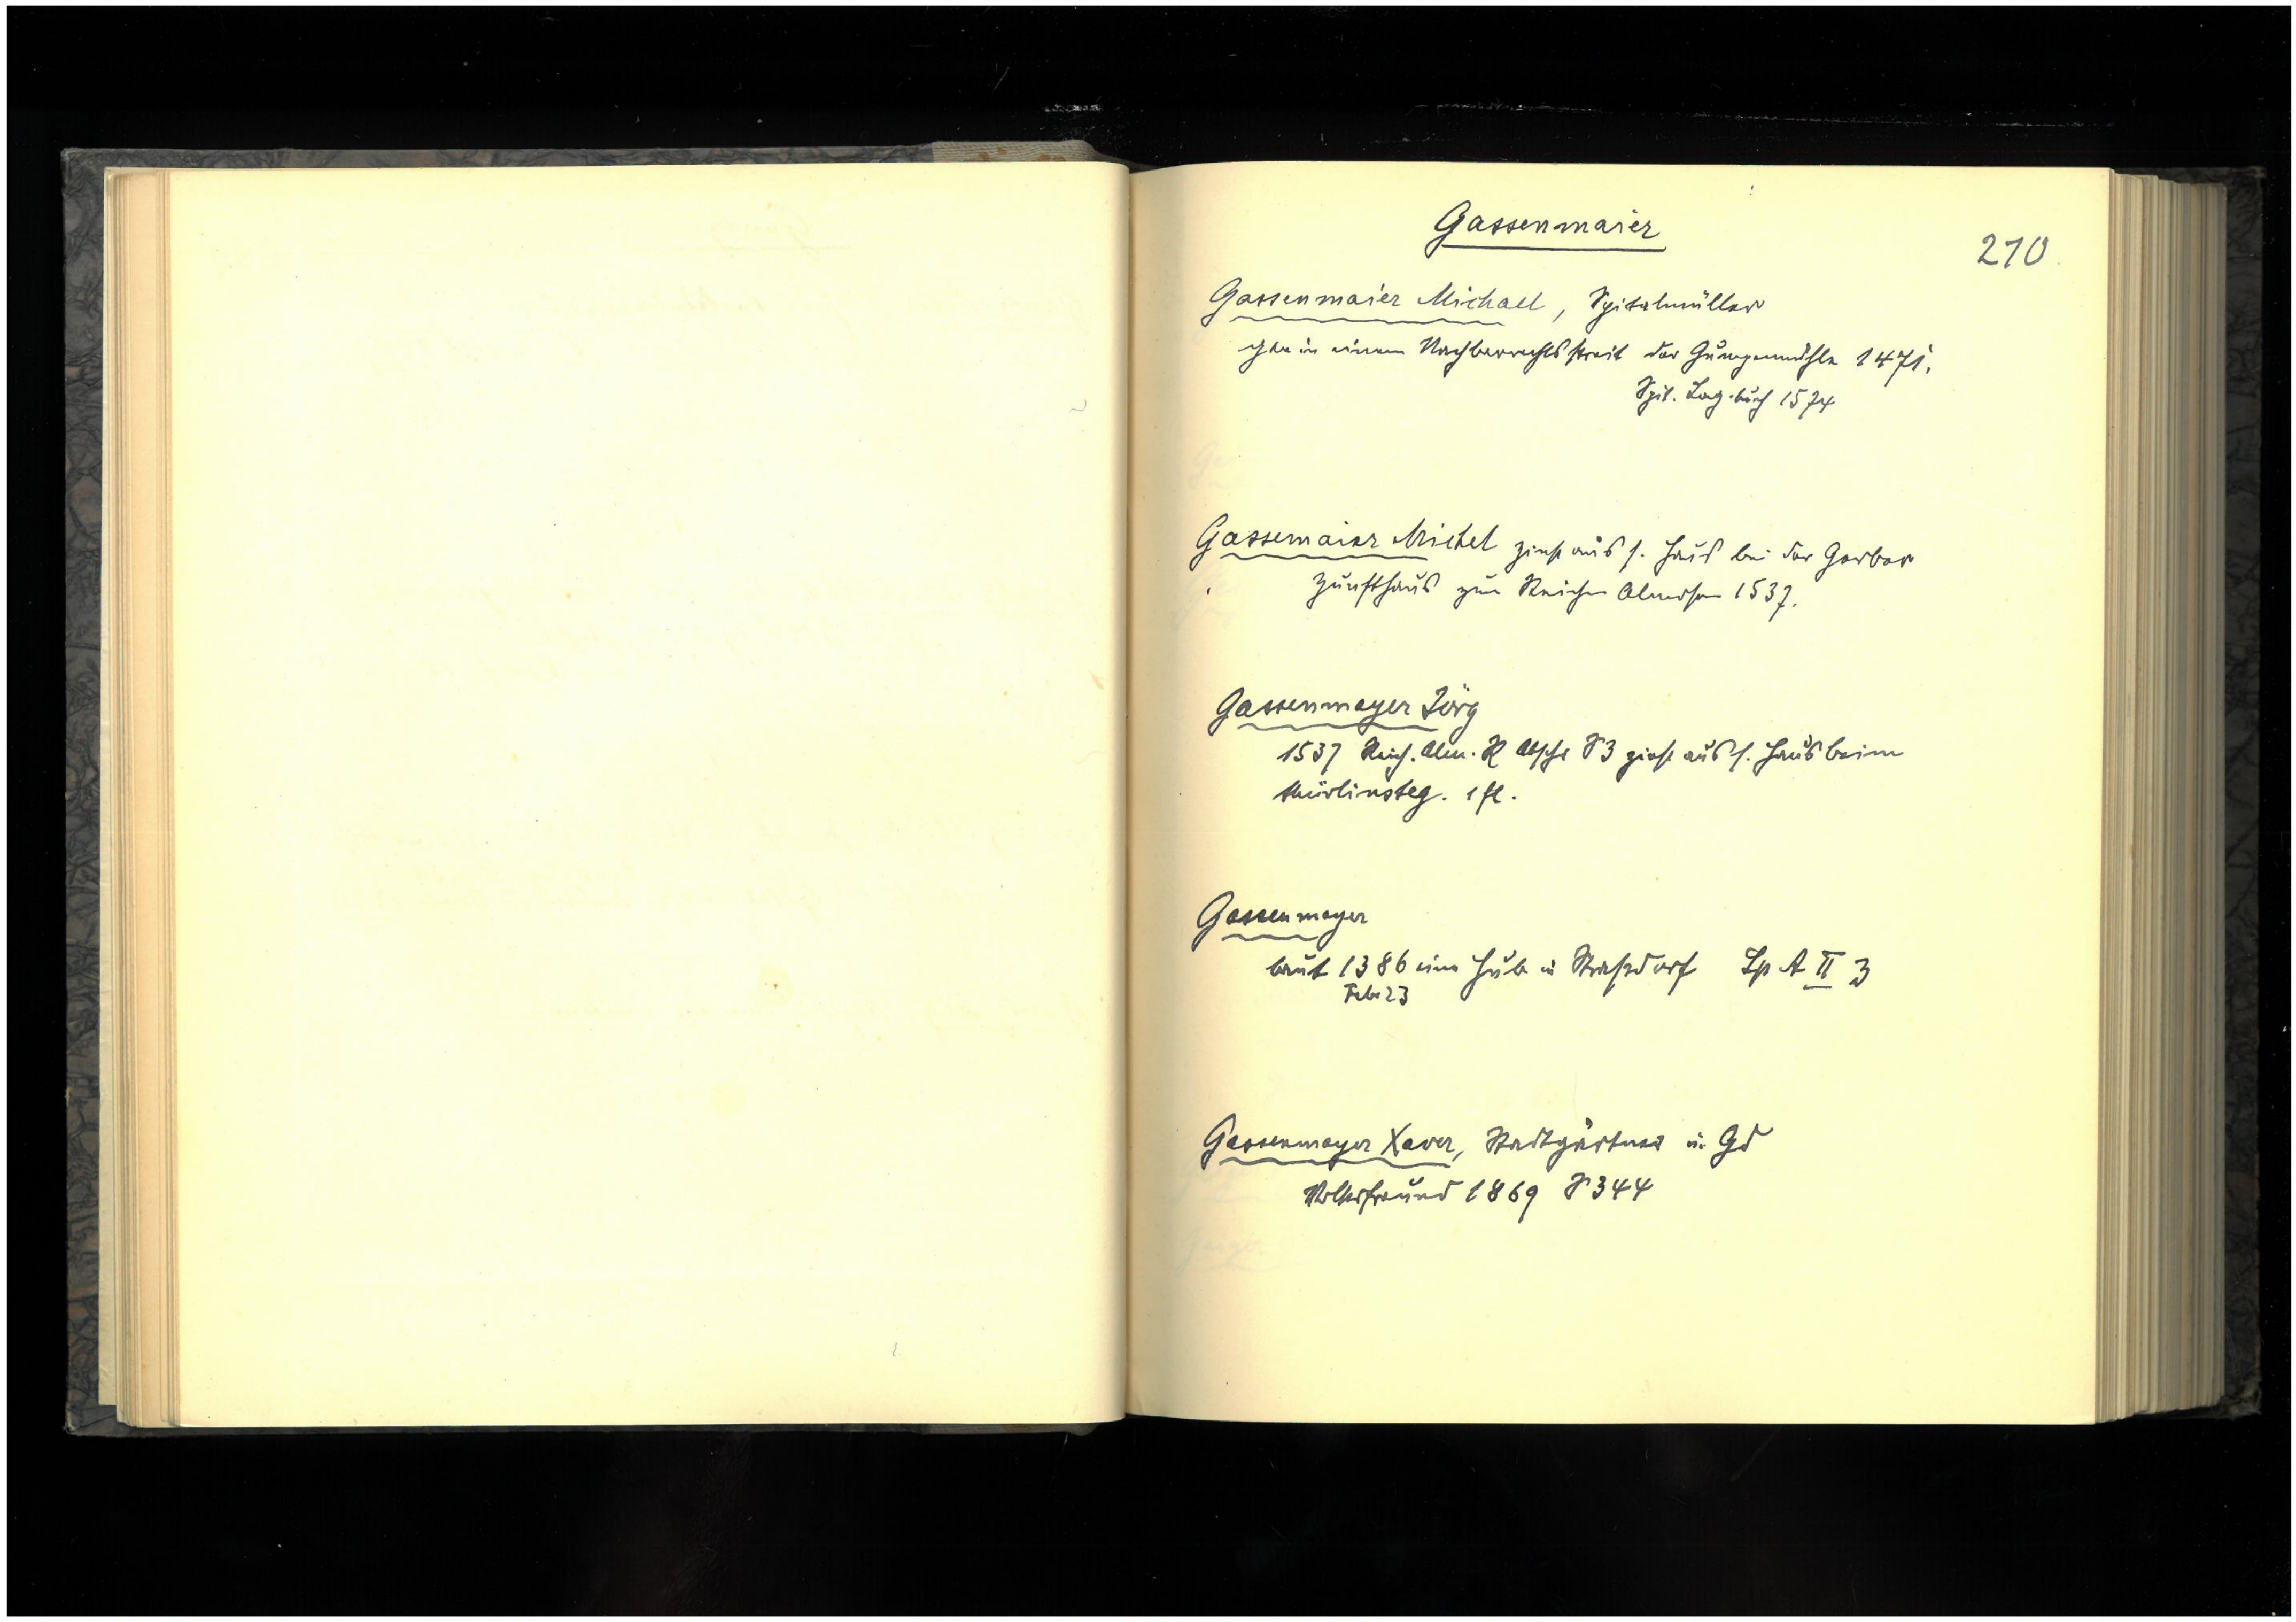 Gassenmaier
210
Gassenmaier Michael, Spitalmüller
gen in einem Nachbarrechtsstreit der Gumpenmühle 1471.
Spit. Lag.buch 1574
Gassemaier Michel zinst aus s. Haus bei der Gerber
Zunfthaus zum Reichen Almosen 1537.
Gassenmayer Jörg
1537 Reich. Alm. R Abschr S 3 zinst aus s. Haus beim
thürlinsteg. 1 fl.
Gassenmayer
baut 1386 eine Hub in Straßdorf Sp A II 3
Febr 23
Gassenmayer Xaver, Stadtgärtner in Gd
Volksfreund 1869 S 344